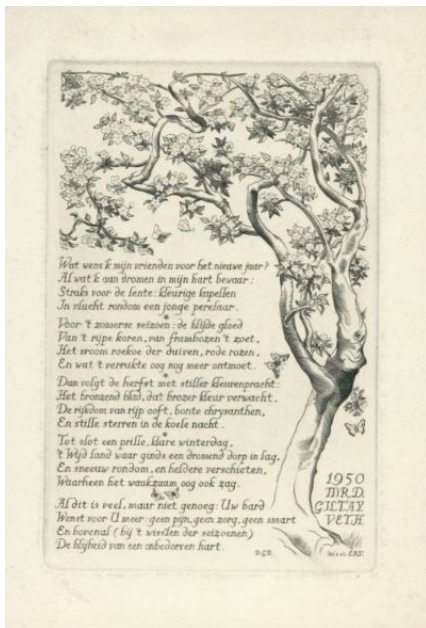 Wat wens 'k mijn vrienden voor het nieuwe jaar?
Al wat 'k aan dromen in mijn hart bewaar:
Straks voor de lente: kleurige kapellen
In vlucht rondom een jonge perelaar.
Voor 't zomerse seizoen: de blijde gloed
Van 't rijpe koren, van frambozen 't zoet,
Het vroom roekoe der duiven, rode rozen,
En wat 't verrukte oog nog meer ontmoet.
Dan volgt de herfst met stiller kleurenpracht:
Het bronzend blad, dat brozer kleur verwacht,
De rijkdom van rijp ooft, bonte chrysanthen,
En stille sterren in de koele nacht.
Tot slot een prille, klare winterdag,
't Wijd land waar ginds een dromend dorp in lag,
En sneeuw rondom, en heldere verschieten,
Waarheen het waakzaam oog ook zag.
Al dit is veel, maar niet genoeg: Uw bard
Wenst voor U meer: geen pijn, geen zorg, geen smart
En bovenal (bij 't wisselen der seizoenen)
De blijheid van een onbedorven hart.
1950
MR.D.
GILTAY
VETH.
D.G.V.